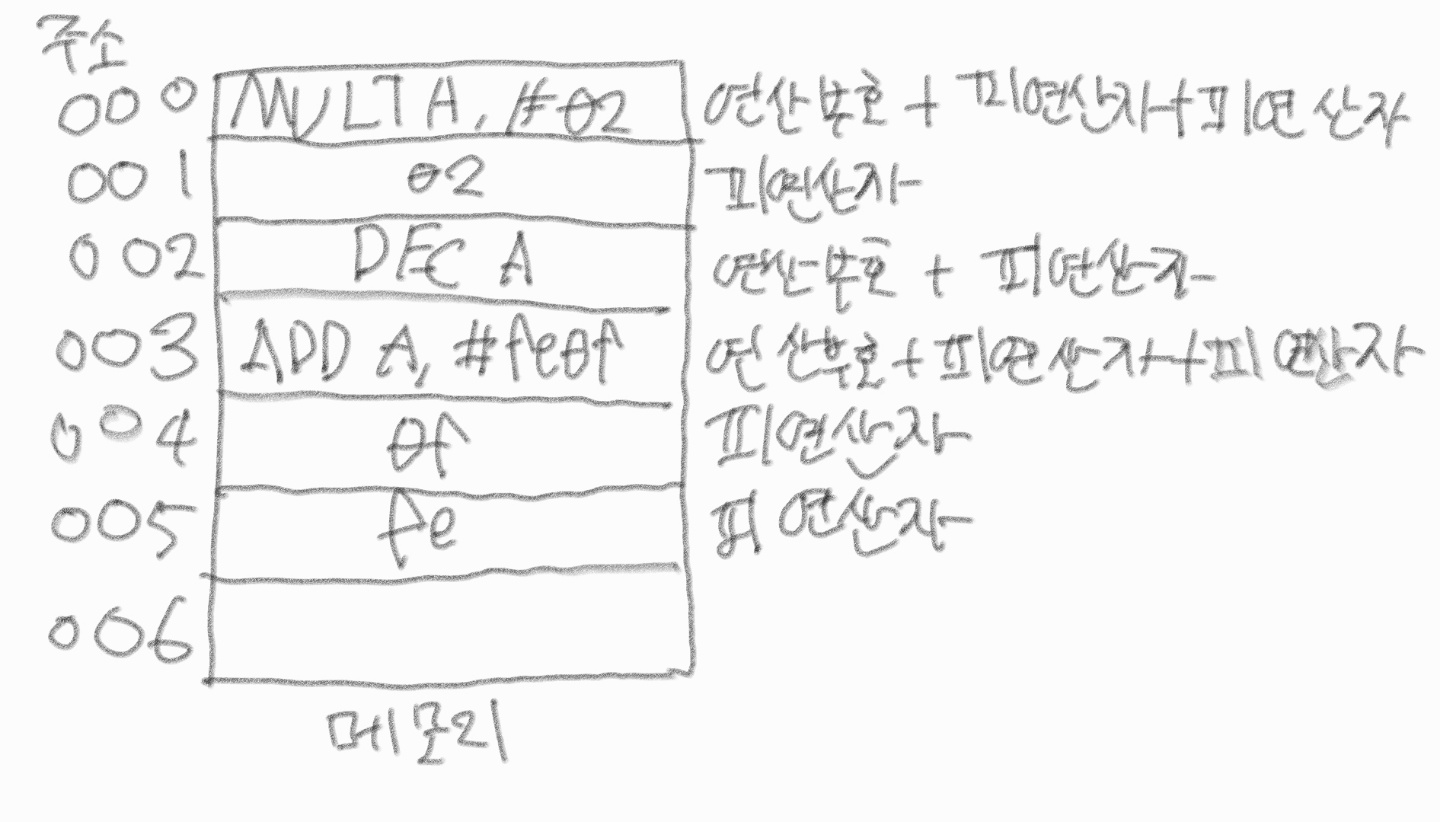 주소
000 MULT A, #02 연산부호 + 피연산자+피연산자
001 02 피연산자
002 DEC A 연산부호 + 피연산자
003 ADD A, #fe0f 연산부호+피연산자+피연산자
004 0f 피연산자
005 fe 피연산자
006
메모리